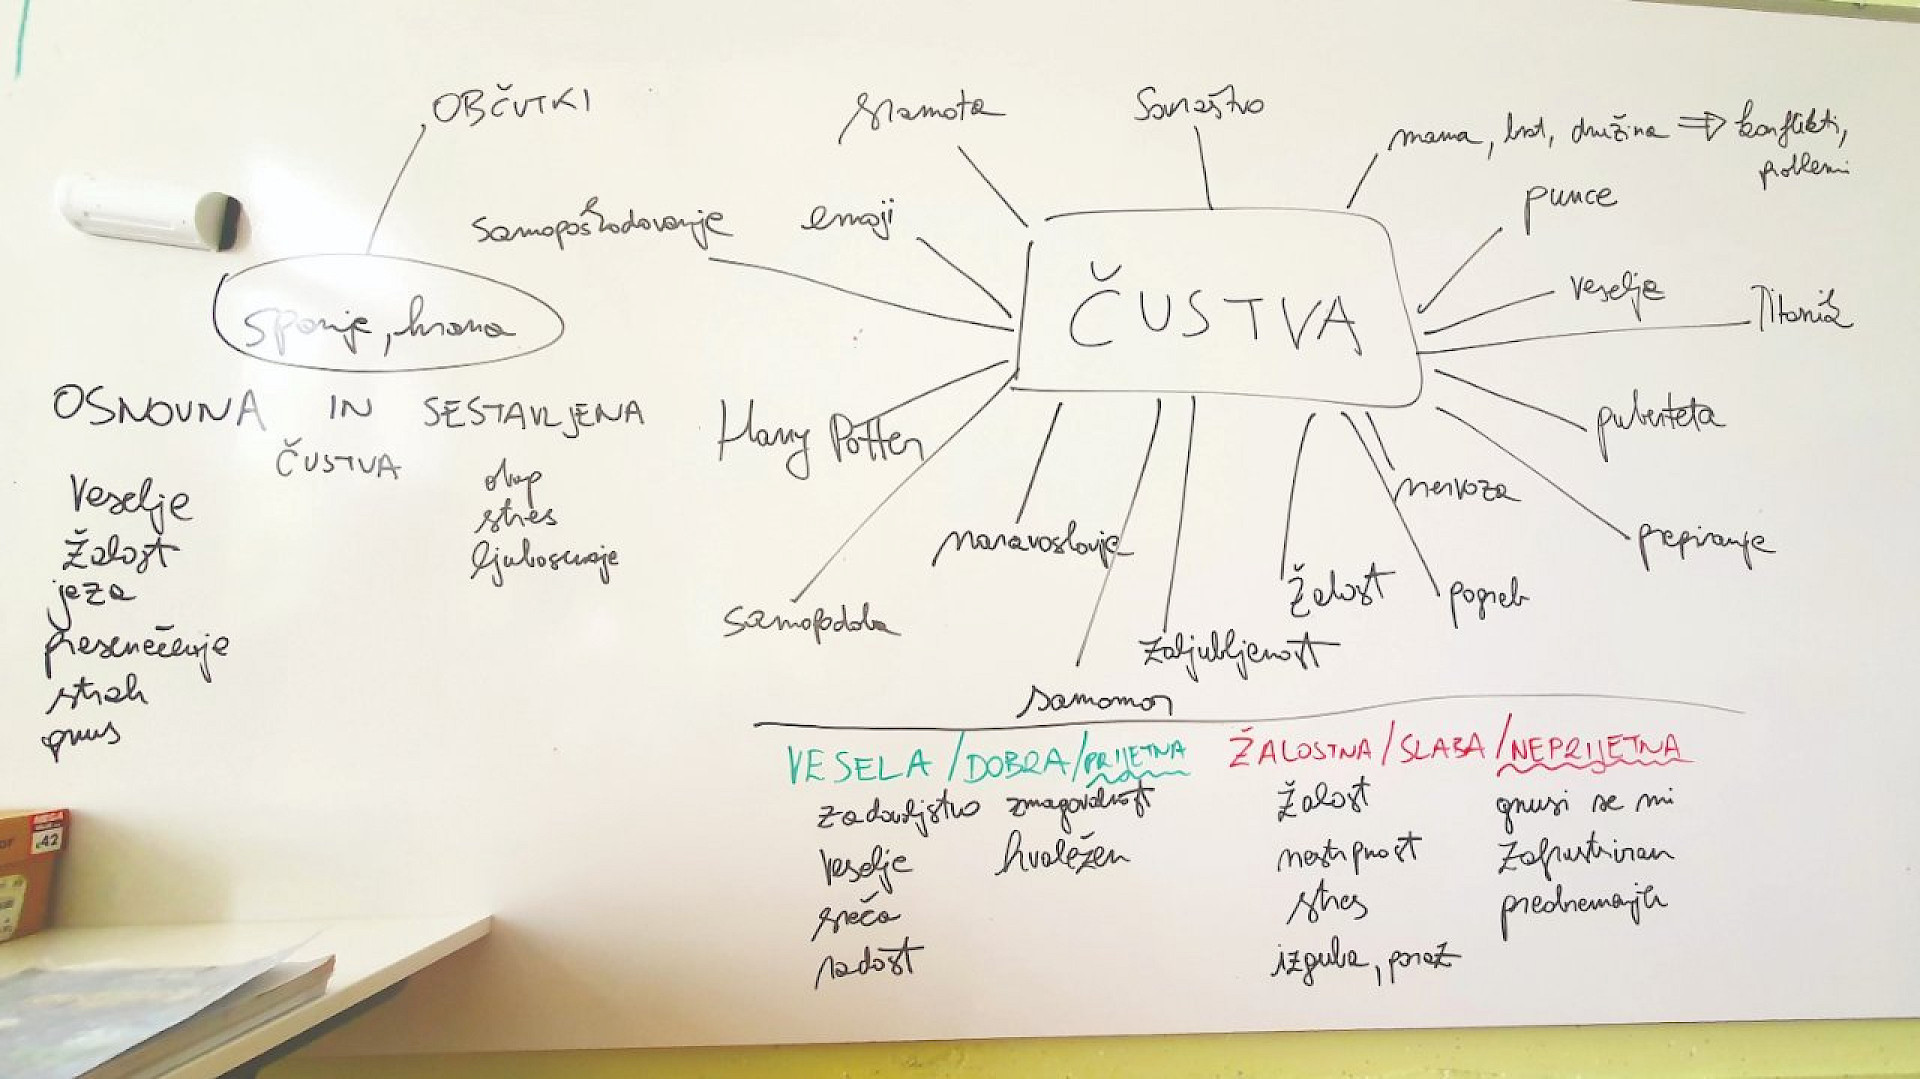 OBČUTKI
spanje, hrana
OSNOVNA IN SESTAVLJENA
ČUSTVA
veselje
žalost
jeza
presenečenje
strah
gnus
obup
stres
ljubosumje
sramota
sovraštvo
mama, brat, družina ⇒ konflikti,
problemi
samopoškodovanje
emoji
punce
ČUSTVA
veselje
Titanik
Harry Potter
puberteta
nervoza
naravoslovje
prepiranje
samopodoba
žalost
pogreb
zaljubljenost
samomor
VESELA / DOBRA / PRIJETNA
zadovoljstvo zmagovalnost
veselje hvaležen
sreča
radost
ŽALOSTNA / SLABA / NEPRIJETNA
žalost gnusi se mi
nestrpnost zafrustriran
stres
izguba, poraz
42